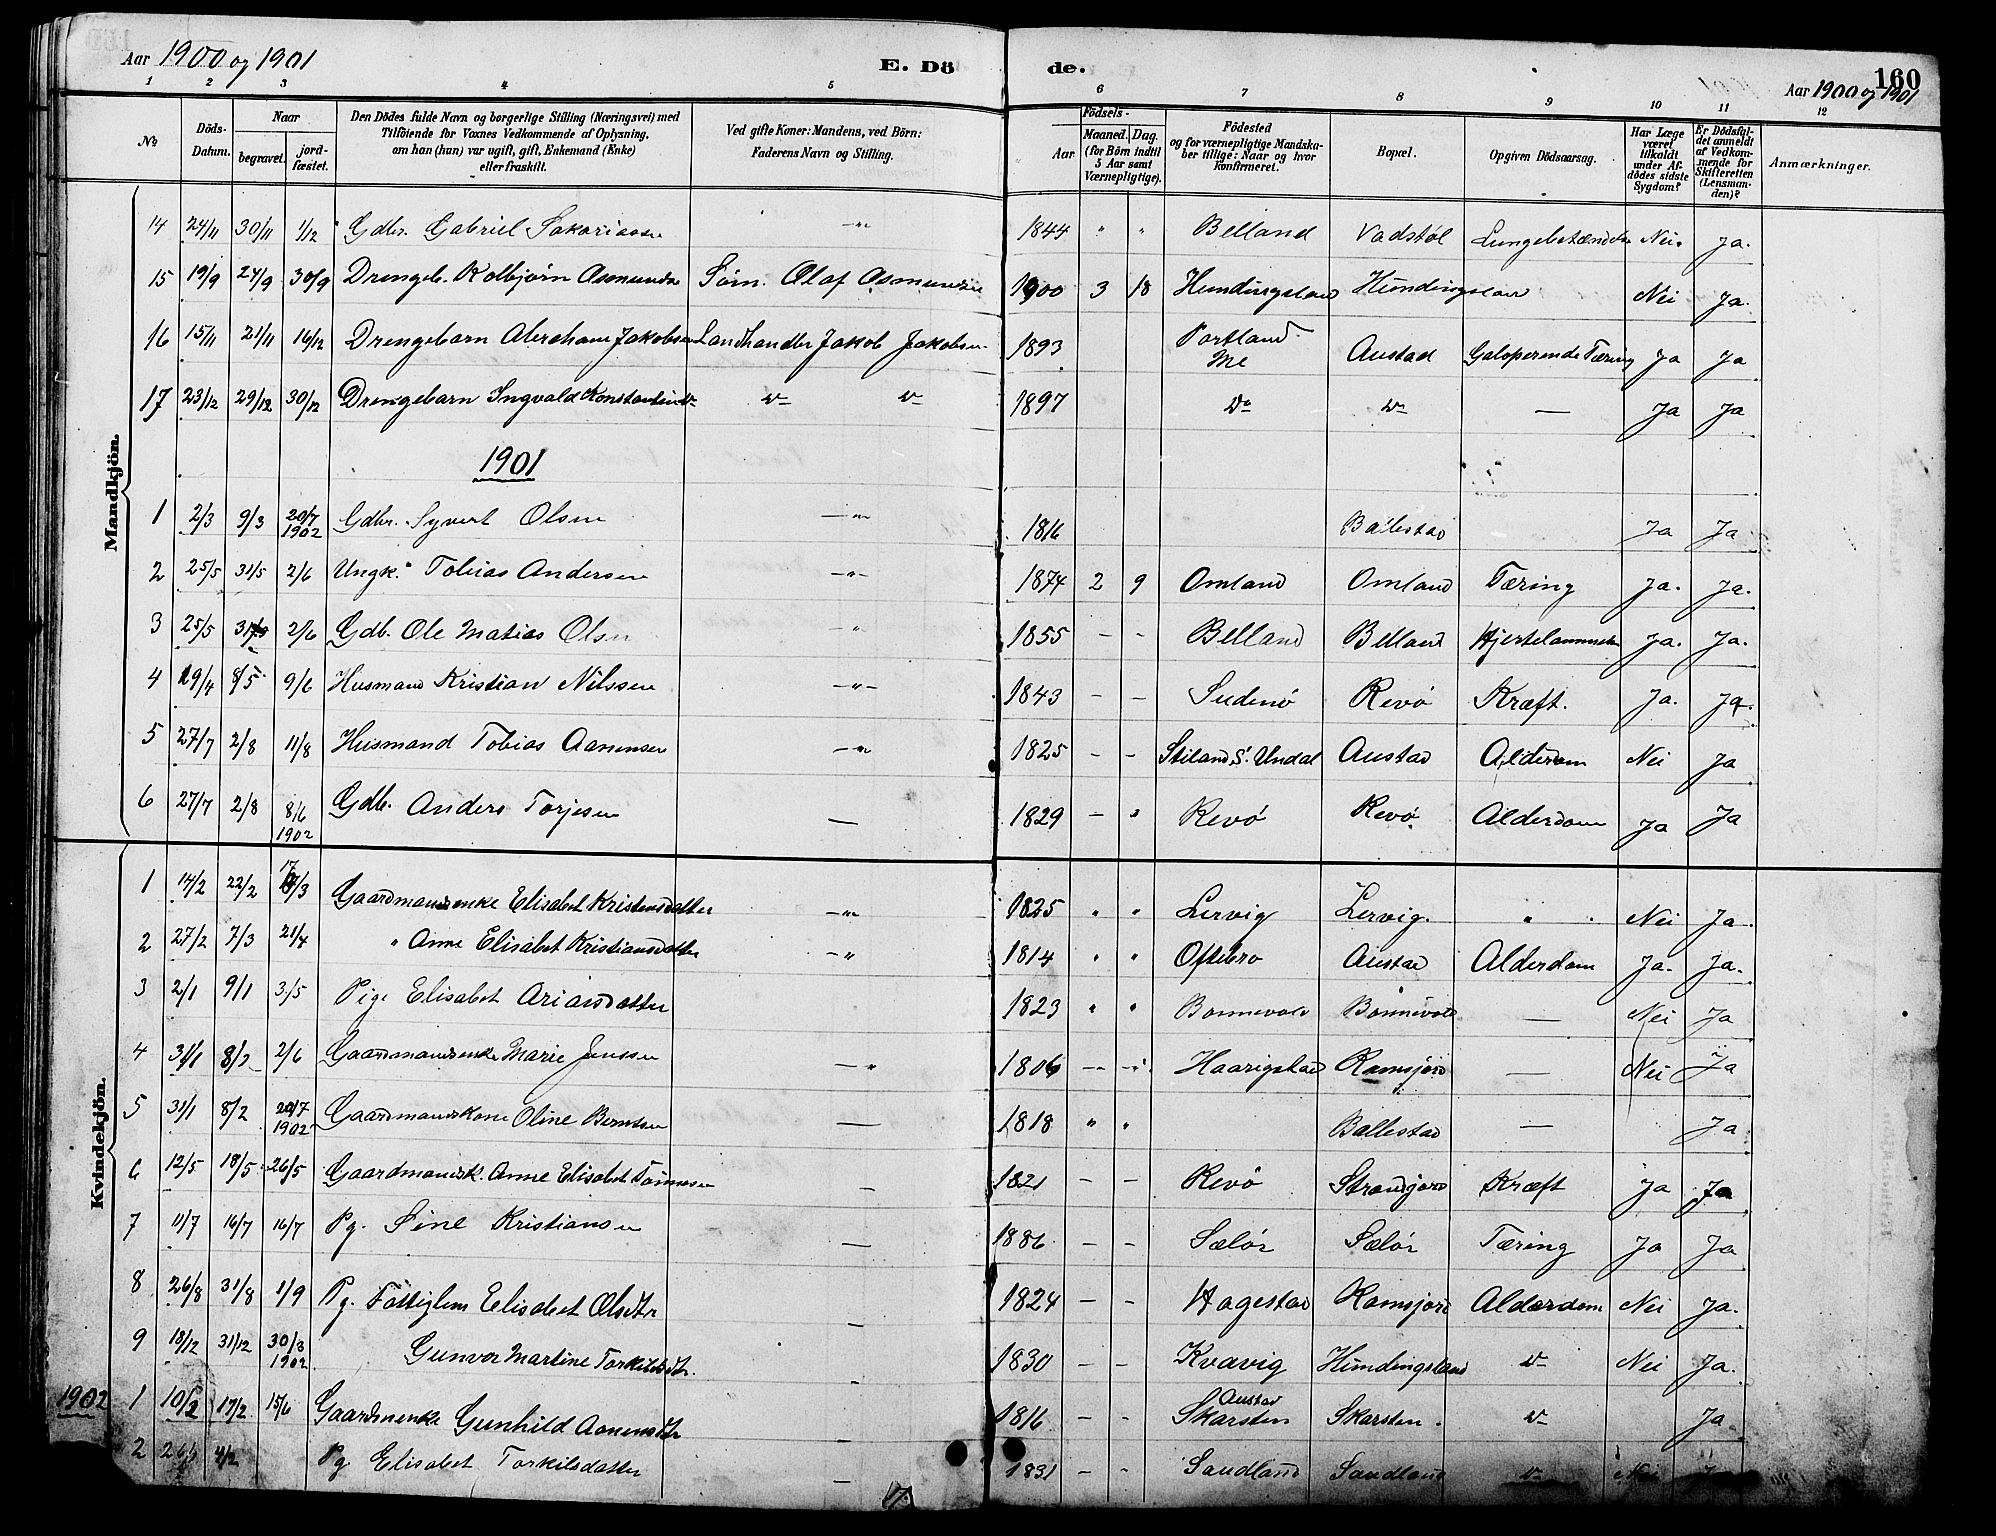 Aar 1900 og 1901
E. Dö
de.
160
Aar 1900 og 1901
1 2 3 4 5 6 7 8 9 10 11 12
No
Döds-Datum.
Naar
begravet.
jord-fæstet.
Den Dödes fulde Navn og borgerlige Stilling (Næringsvei) med
Tilföiende for Voxnes Vedkommende af Oplysning,
om han (hun) var ugift, gift, Enkemand (Enke)
eller fraskilt.
Ved gifte Koner: Mandens, ved Börn:
Faderens Navn og Stilling.
Födsels-
Aar
Maaned. Dag.
(for Börn indtil
5 Aar samt
Værnepligtige).
Födested
og for værnepligtige Mandska-
ber tillige: Naar og hvor
konfirmeret.
Bopæl.
Opgiven Dödsaarsag.
Har Læge
været
tilkaldt
under Af-
dödes sidste
Sygdom?
Er Dödsfal-
det anmeldt
af Vedkom-
mende for
Skifteretten
(Lensman-
den)?
Anmærkninger.
Mandkjön.
14 24/11 30/11 1/12 Gdbr. Gabriel Sakariassen —"— 1844 " " Belland Vadstøl Lungebetændelse Nei. Ja.
15 19/9 24/9 30/9 Drengeb. Kolbjørn Asmundsen Olaf Asmundsen 1900 3 18 Hundingsland Hundingsland Nei Ja.
16 15/11 21/11 16/12 Drengebarn Abraham Jakobsen Landhandler Jakob Jakobsen 1893 Portland Me Austad Galoperende Tæring Ja Ja
17 23/12 29/12 30/12 Drengebarn Ingvald Konstantin Do Do Do 1897 Do Do — Ja Ja
1901
1 2/3 9/3 20/7 1902 Gdbr. Syvert Olsen —"— 1816 Ballestad Ja Ja
2 25/5 31/5 2/6 Ungk. Tobias Andersen —"— 1874 2 9 Omland Omland Tæring Ja. Ja.
3 25/5 31/5 2/6 Gdb. Ole Matias Olsen " 1855 - - Belland Belland Hjertelammelse Ja. Ja.
4 29/4 8/5 9/6 Husmand Kristian Nilssen —"— 1843 - - Revø Kræft. Ja. Ja.
5 27/7 2/8 11/8 Husmand Tobias Aanensen —"— 1825 - - Stiland, S. Undal Austad Alderdom Nei Ja
6 27/7 2/8 8/6 1902 Gdb. Anders Torjesen — 1829 - " Revø Revø Alderdom Ja Ja
Kvindekjön.
1 14/2 22/2 17/3 Gaardmandsenke Elisabet Kristensdatter —"— 1825 " " Lervig Lervig. " Nei Ja.
2 27/2 7/3 21/4 " Anne Elisabet Kristiansdatter —" 1814 " " Oftebro Austad Alderdom Ja. Ja.
3 2/1 9/1 3/5 Pige Elisabet Ariansdatter 1823 " " Bonnevold Bonnevold — Nei Ja
4 31/1 8/2 2/6 Gaardmandsenke Marie Jenssen —" 1806 — — Haarigstad Ramsjord — Nei Ja
5 31/1 8/2 20/7 1902 Gaardmandskone Oline Berntsen — 1818 " " Ballestad — Ja
6 12/5 18/5 26/5 Gaardmandsk. Anne Elisabet Tønnesen — 1821 - - Revø Strandjord Kræft Ja Ja
7 11/7 16/7 16/7 Pg. Sine Kristiansen — 1886 - - Sælør Sælør Tæring Ja Ja
8 26/8 31/8 1/9 Pg. Fattiglem Elisabet Olsdtr — 1824 - - Hagestad Ramsjord Alderdom Nei Ja.
9 18/12 31/12 30/3 1902 Gunvor Martine Torkildsdtr. — 1830 - - Kvavig Hundingsland Do Nei Ja.
1902 1 10/2 17/2 15/6 Gaardmenke Gunhild Aanensdtr — 1816 - - Austad Skarsten Skarsten. Do Ja
2 4/2 Pg Elisabet Torkilsdatter — 1831 - - Sandland Sandland Do Nei Ja